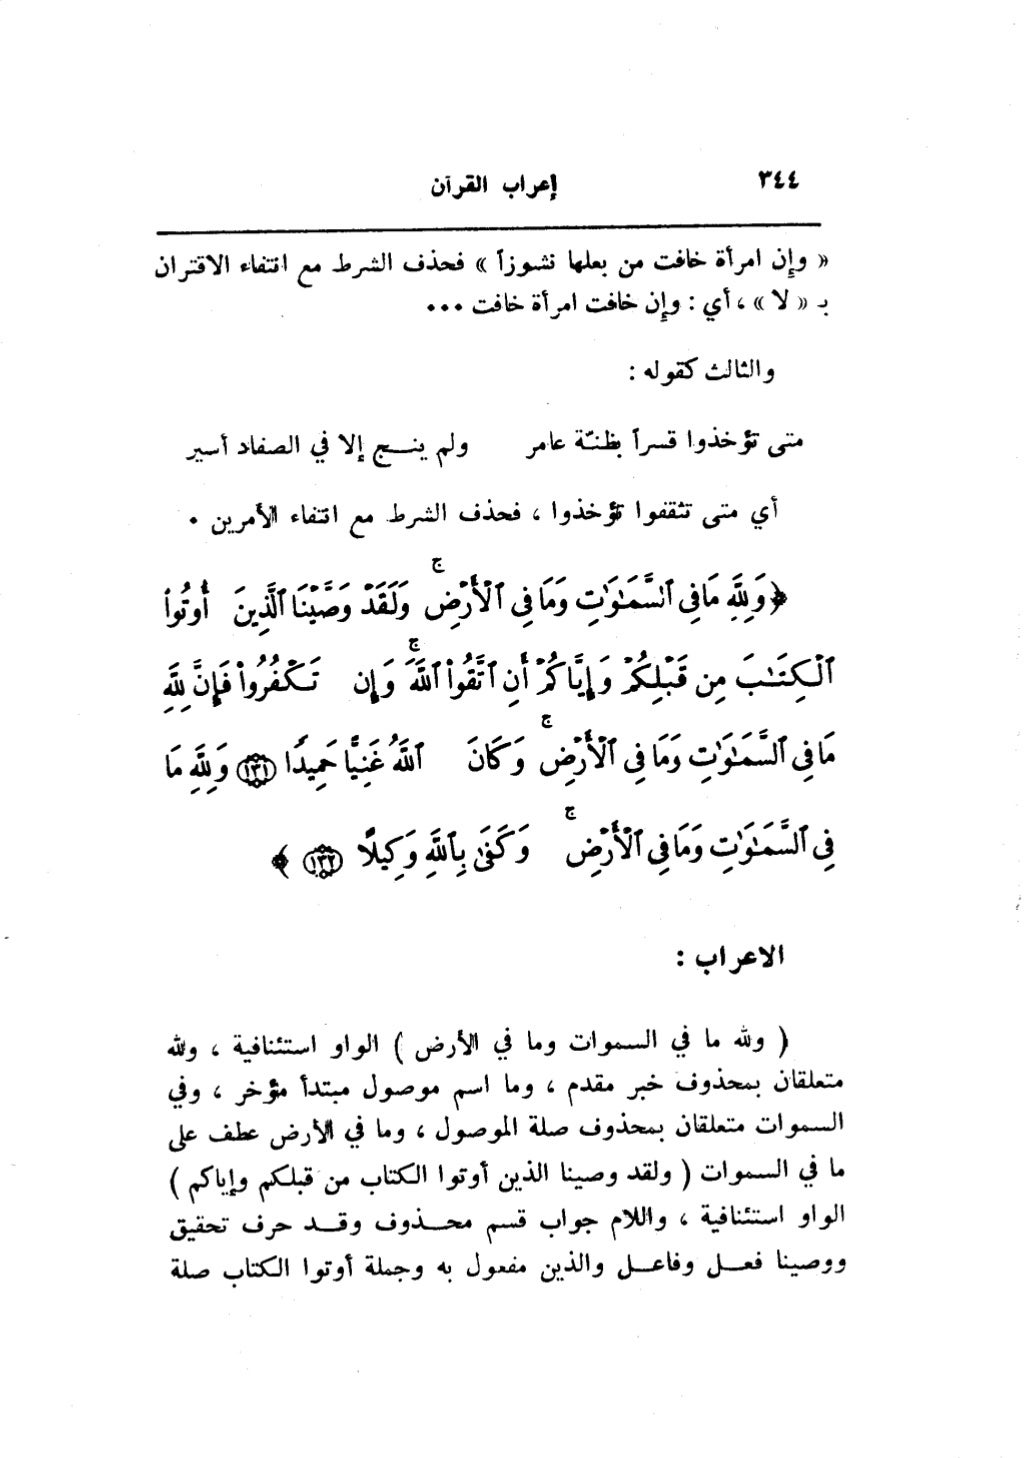 ٣٤٤ إعراب القرآن
« وإن امرأة خافت من بعلها نشوزاً » فحذف الشرط مع انتفاء الاقتران
بـ « لا » ، أي : وإن خافت امرأة خافت ...
والثالث كقوله :
متى تؤخذوا قسراً بظنّة عامر ولم ينـج إلا في الصفاد أسير
أي متى تثقفوا تؤخذوا ، فحذف الشرط مع انتفاء الأمرين .
﴿ وَلِلَّهِ مَا فِى ٱلسَّمَـٰوَٰتِ وَمَا فِى ٱلْأَرْضِ ۚ وَلَقَدْ وَصَّيْنَا ٱلَّذِينَ أُوتُوا۟
ٱلْكِتَـٰبَ مِن قَبْلِكُمْ وَإِيَّاكُمْ أَنِ ٱتَّقُوا۟ ٱللَّهَ ۚ وَإِن تَكْفُرُوا۟ فَإِنَّ لِلَّهِ
مَا فِى ٱلسَّمَـٰوَٰتِ وَمَا فِى ٱلْأَرْضِ ۚ وَكَانَ ٱللَّهُ غَنِيًّا حَمِيدًا ١٣١ وَلِلَّهِ مَا
فِى ٱلسَّمَـٰوَٰتِ وَمَا فِى ٱلْأَرْضِ ۚ وَكَفَىٰ بِٱللَّهِ وَكِيلًا ١٣٢ ﴾
الاعراب :
( ولله ما في السموات وما في الأرض ) الواو استئنافية ، ولله
متعلقان بمحذوف خبر مقدم ، وما اسم موصول مبتدأ مؤخر ، وفي
السموات متعلقان بمحذوف صلة الموصول ، وما في الأرض عطف على
ما في السموات ( ولقد وصينا الذين أوتوا الكتاب من قبلكم وإياكم )
الواو استئنافية ، واللام جواب قسم محـذوف وقـد حرف تحقيق
ووصينا فعـل وفاعـل والذين مفعول به وجملة أوتوا الكتاب صلة